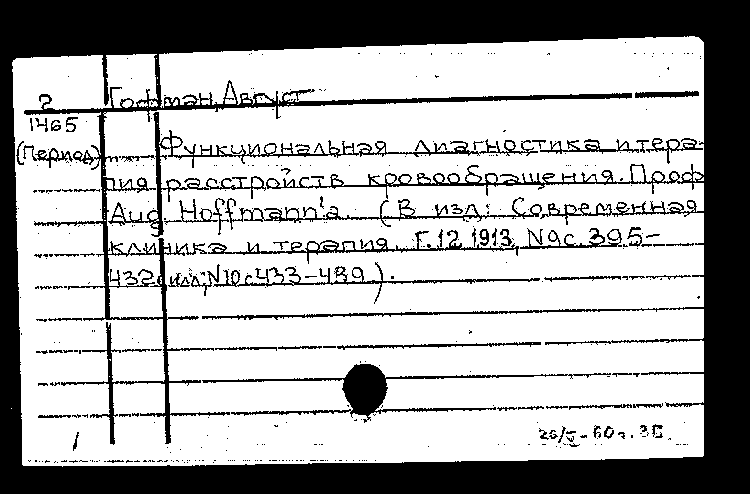 2 Гофман, Август
1465
(Период) Функциональная диагностика и тера-
пия расстройств кровообращения. Проф
Aug. Hoffmann'а. (В изд: Современная
клиника и терапия. Г.12 1913, N9 с. 395-
432 илл; N10 с 433-489).
1 26/V-60г.